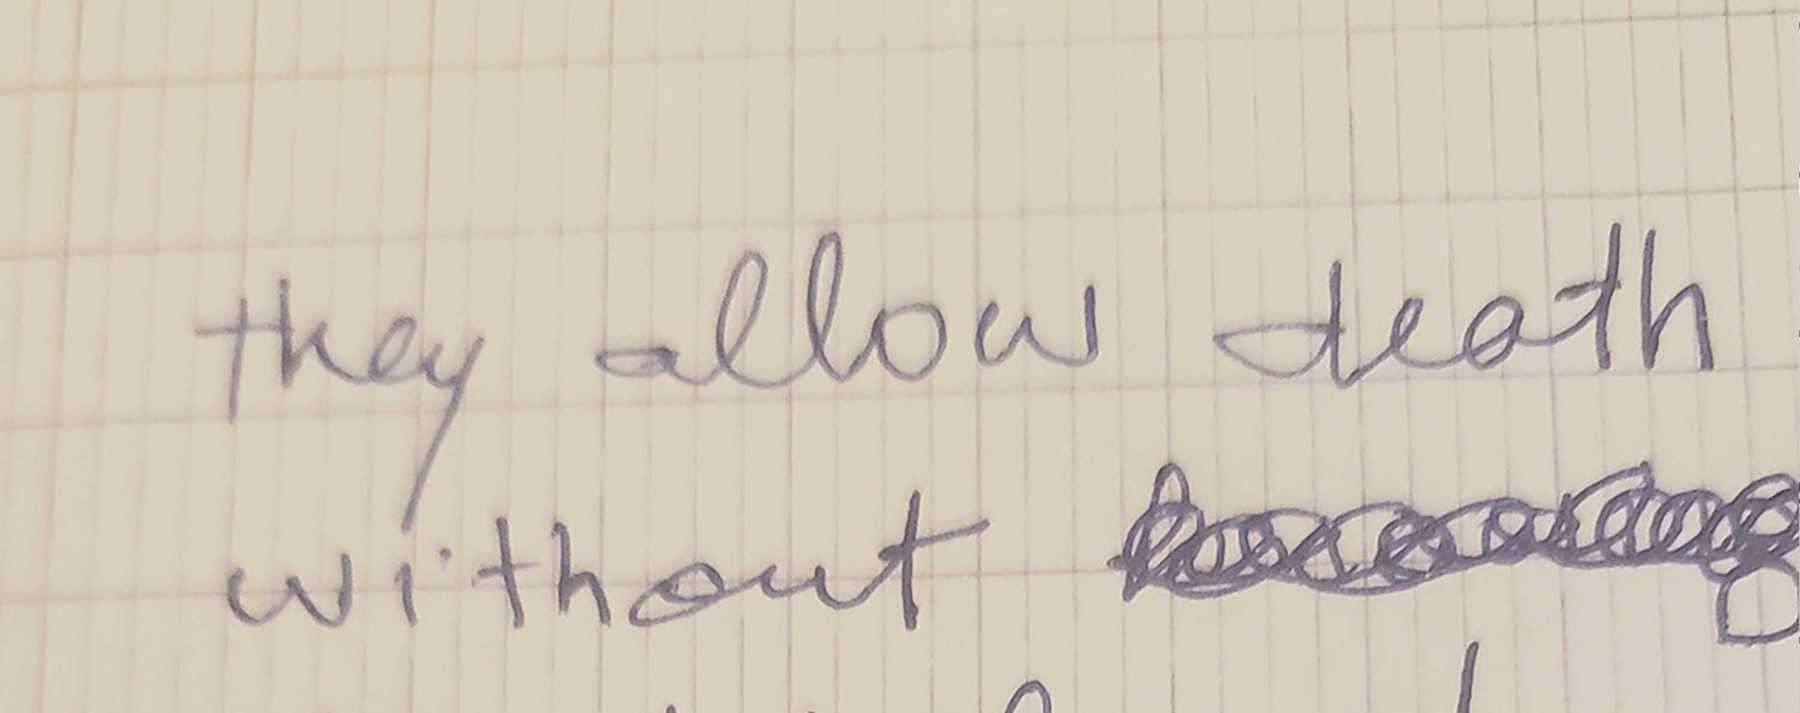 they allow death
without